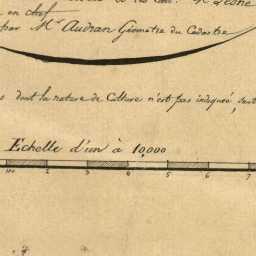 en chef
par Mr Audran Géomètre du Cadastre
dont la nature de Culture n'est pas indiquée, sont
Echelle d'un à 10,000
100 2 3 4 5 6 7